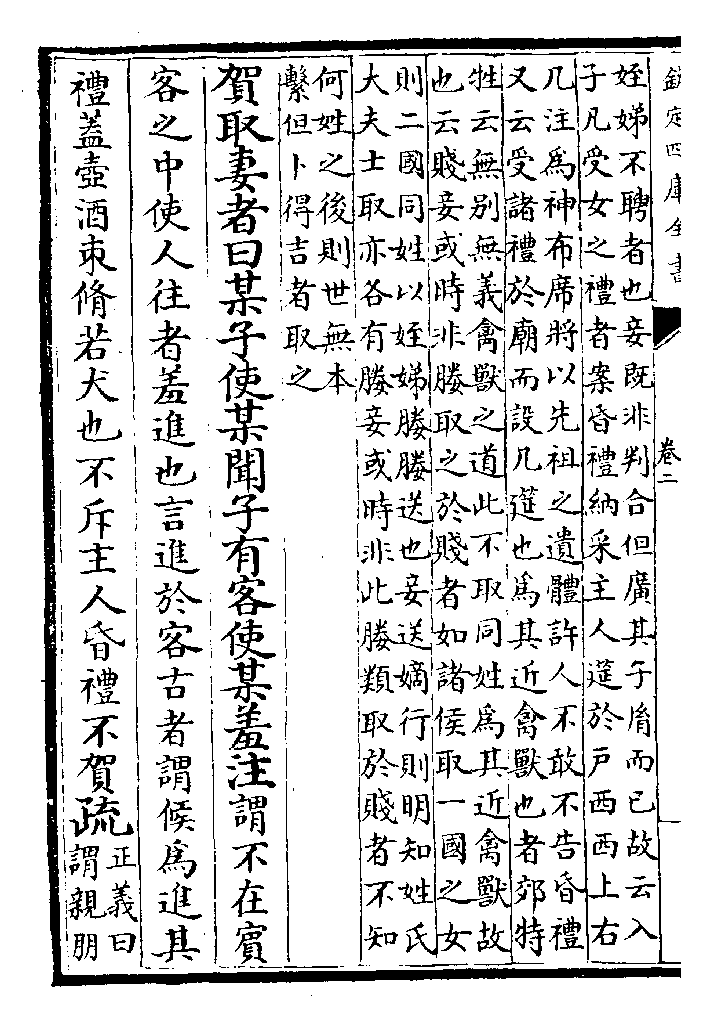 欽定四庫全書
卷二
姪娣不聘者也妾既非判合但廣其子胤而已故云入
子凡受女之禮者案昏禮納采主人筵於戸西西上右
几注為神布席將以先祖之遺體許人不敢不告昏禮
又云受諸禮於廟而設几筵也為其近禽獸也者郊特
牲云無别無義禽獸之道此不取同姓為其近禽獸故
也云賤妾或時非媵取之於賤者如諸侯取一國之女
則二國同姓以姪娣媵媵送也妾送嫡行則明知姓氏
大夫士取亦各有媵妾或時非此媵類取於賤者不知
何姓之後則世無本
繫但卜得吉者取之
賀取妻者曰某子使某聞子有客使某羞注謂不在賓
客之中使人往者羞進也言進於客古者謂候為進其
禮蓋壺酒束脩若犬也不斥主人昏禮不賀疏
正義曰
謂親朋